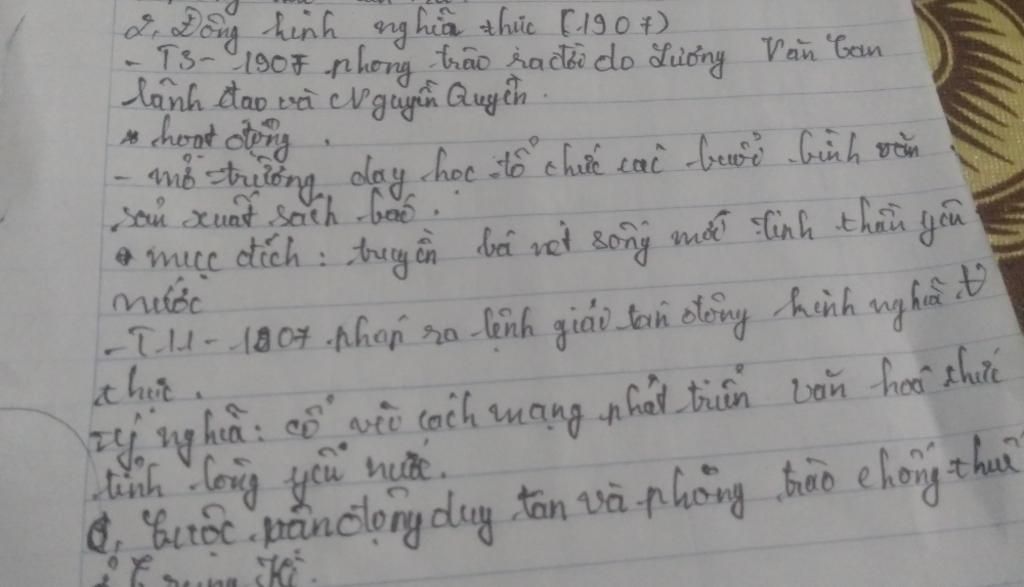 2, Đông kinh nghĩa thục (1907)
- T3 - 1907 phong trào ra đời do Lương Văn Can
lãnh đạo và Nguyễn Quyền.
* hoạt động.
- mở trường dạy học tổ chức các buổi bình văn
sản xuất sách báo.
* mục đích: truyền bá nét sống mới tinh thần yêu
nước
- T11 - 1907 pháp ra lệnh giải tán đông kinh nghĩa t
thục.
ý nghĩa: cổ vũ cách mạng phát triển văn hoá thức
tỉnh lòng yêu nước.
Cuộc vận động duy tân và phong trào chống thuế
Trung Kì.